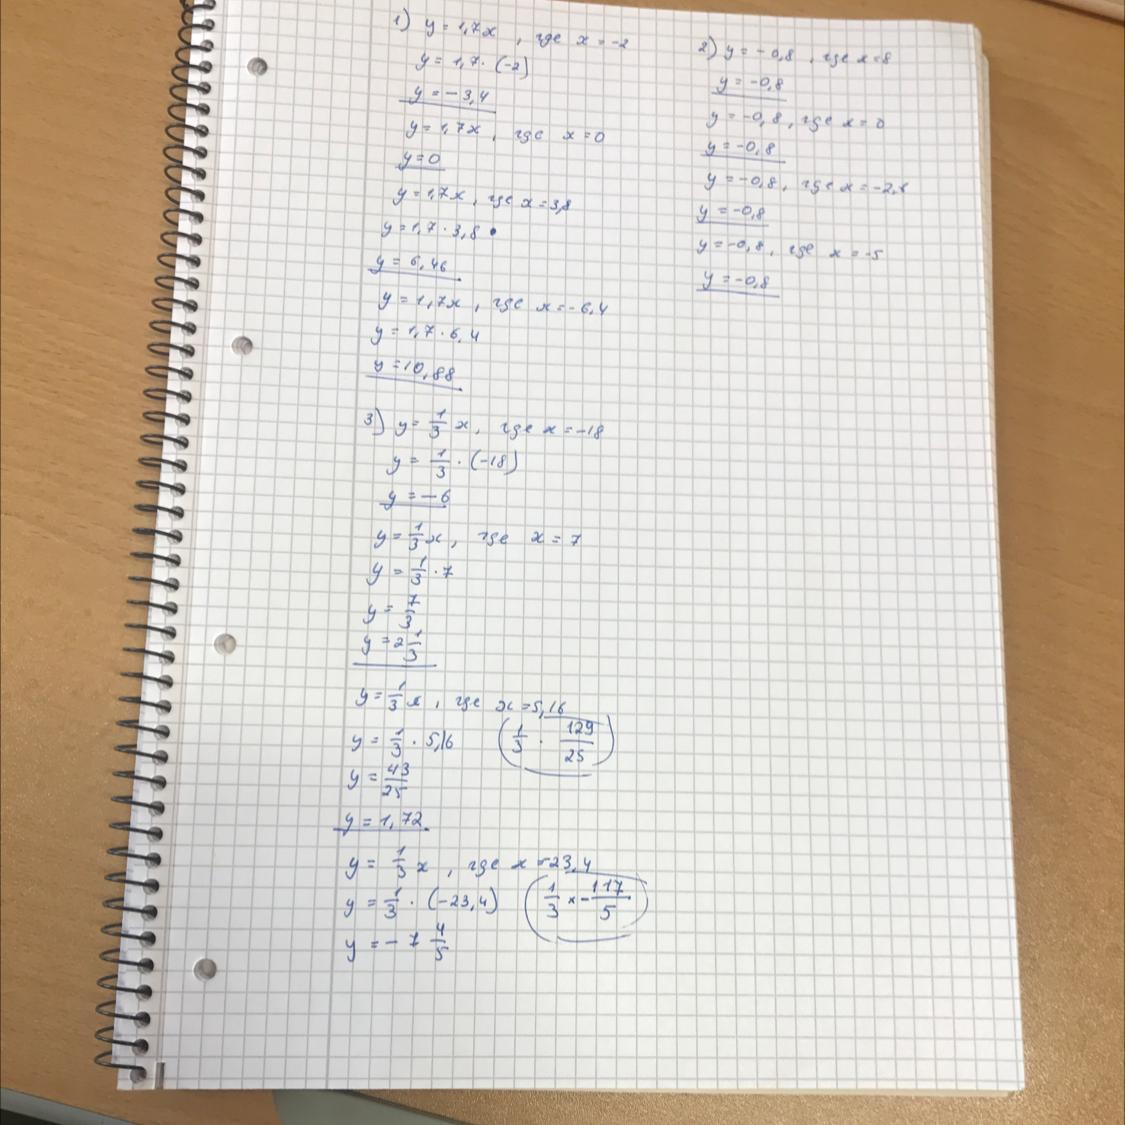 1) y = 1,7x , где x = -2
y = 1,7 · (-2)
y = - 3,4
y = 1,7x , где x = 0
y = 0
y = 1,7x , где x = 3,8
y = 1,7 · 3,8
y = 6,46
y = 1,7x , где x = -6,4
y = 1,7 · 6,4
y = 10,88
2) y = -0,8 , где x = 8
y = -0,8
y = -0,8 , где x = 0
y = -0,8
y = -0,8 , где x = -2,1
y = -0,8
y = -0,8 , где x = -5
y = -0,8
3) y = 1/3 x , где x = -18
y = 1/3 · (-18)
y = - 6
y = 1/3 x , где x = 7
y = 1/3 · 7
y = 7/3
y = 2 1/3
y = 1/3 x , где x = 5,16
y = 1/3 · 5,16 (1/3 · 129/25)
y = 43/25
y = 1,72
y = 1/3 x , где x = -23,4
y = 1/3 · (-23,4) (1/3 × - 117/5)
y = - 7 4/5